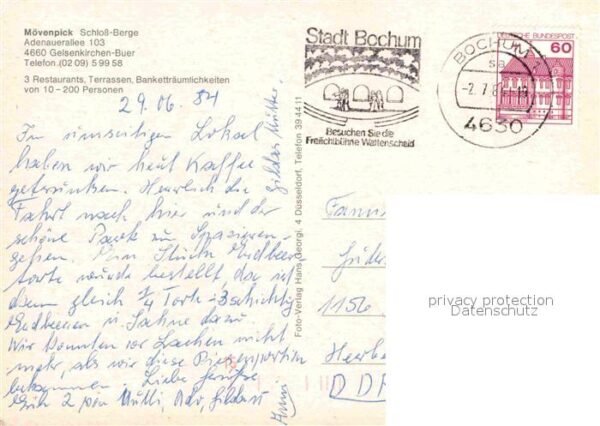 Mövenpick Schloß-Berge
Adenauerallee 103
4660 Gelsenkirchen-Buer
Telefon (02 09) 5 99 58
3 Restaurants, Terrassen, Bankettträumlichkeiten
von 10 – 200 Personen
29.06.84
Im umseitigen Lokal
haben wir heut Kaffee
getrunken. Herrlich die
Fahrt nach hier und der
schöne Park zu Spazieren-
gehen. Ein Stück Erdbeer
torte wurde bestellt, da ist
dann gleich 1/4 Torte 3 schichtig
Erdbeeren u. Sahne dazu
Wir konnten vor Lachen nicht
mehr, als wir diese Riesenportion
bekommen. Liebe Grüße
Mutti
Foto-Verlag Hans Georgi, 4 Düsseldorf, Telefon 39 44 11
Stadt Bochum
Besuchen Sie die
Freilichtbühne Wattenscheid
BOCHUM 1
sa
-2.7.8
4630
DEUTSCHE BUNDESPOST
60
1156
DDR
privacy protection
Datenschutz